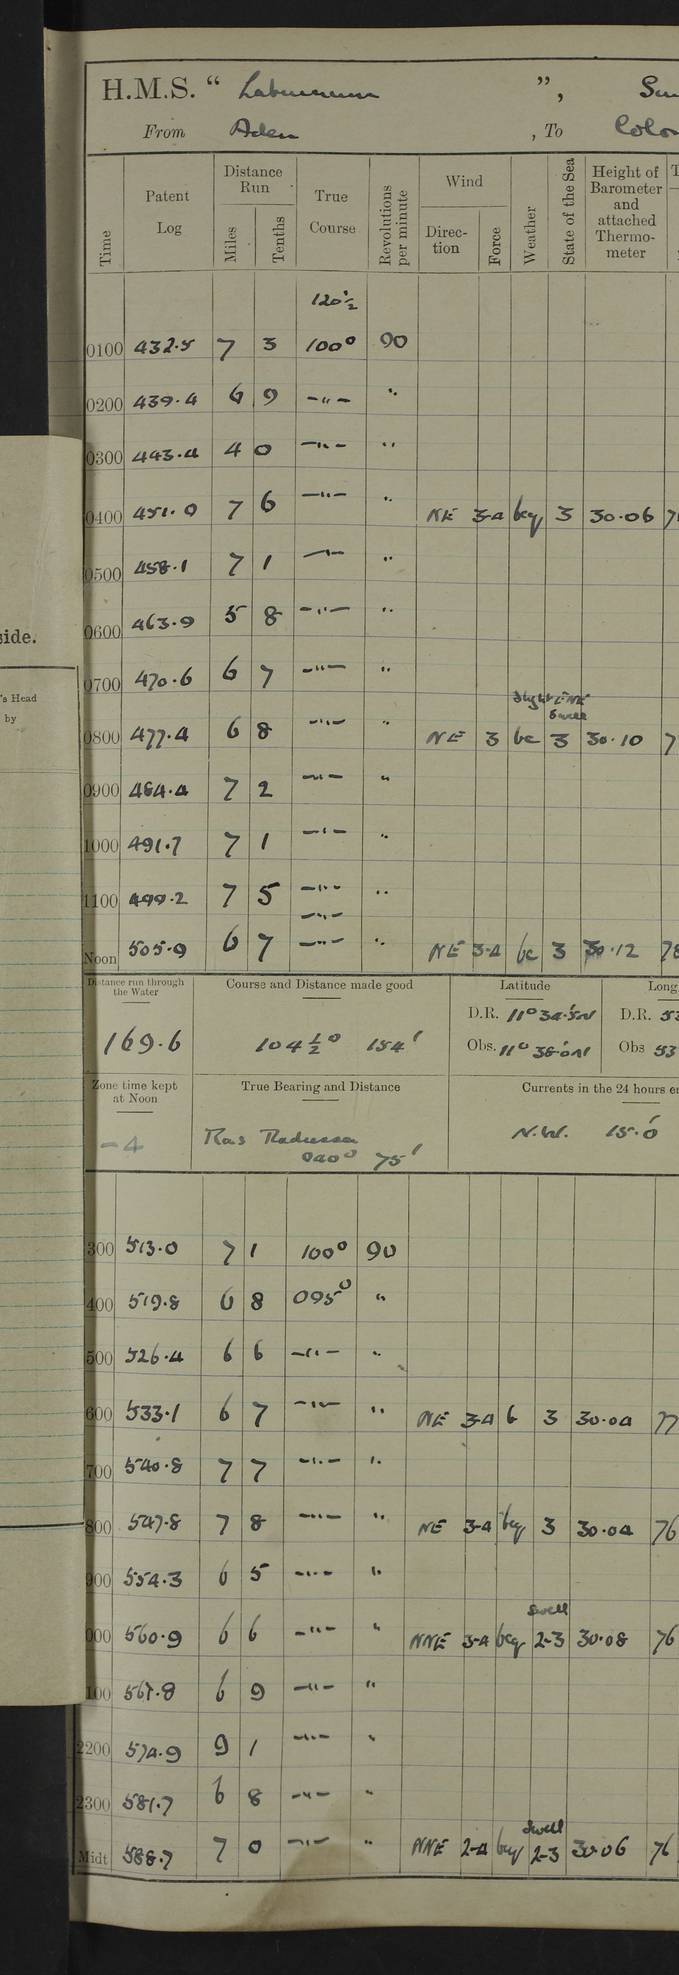 H.M.S. “ Laburnum ”,
From Aden , To
Time
Patent Log
Distance Run
Miles
Tenths
True Course
Revolutions per minute
Wind
Direction
Force
Weather
State of the Sea
Height of Barometer and attached Thermometer
120½
0100 432.5 7 3 100° 90
0200 439.4 6 9 —"— "
0300 443.4 4 0 —"— "
0400 451.0 7 6 —"— " NE 3-4 bcy 3 30.06
0500 458.1 7 1 —"— "
side.
0600 463.9 5 8 —"— "
0700 470.6 6 7 —"— "
's Head
by
slight ENE
Swell
0800 477.4 6 8 —"— " NE 3 bc 3 30.10
0900 484.4 7 2 —"— "
1000 491.7 7 1 —"— "
1100 499.2 7 5 —"— "
—"—
Noon 505.9 6 7 —"— " NE 3-4 bc 3 30.12 78
Distance run through the Water
Course and Distance made good
Latitude
Long
169.6
104½° 154'
D.R. 11°34'.5N D.R. 53
Obs. 11°38'.0N Obs 53
Zone time kept at Noon
True Bearing and Distance
Currents in the 24 hours e
-4
Ras
040° 75'
N.W. 15'.0
300 513.0 7 1 100° 90
400 519.8 6 8 095° "
500 526.4 6 6 —"— "
600 533.1 6 7 —"— " NE 3-4 b 3 30.04 77
700 540.8 7 7 —"— "
800 547.8 7 8 —"— " NE 3-4 bcy 3 30.04 76
900 554.3 6 5 —"— "
Swell
000 560.9 6 6 —"— " NNE 3-4 bcy 2-3 30.08 76
100 567.8 6 9 —"— "
2200 574.9 9 1 —"— "
2300 581.7 6 8 —"— "
Swell
Midt 588.7 7 0 —"— " NNE 2-4 bcy 2-3 30.06 76